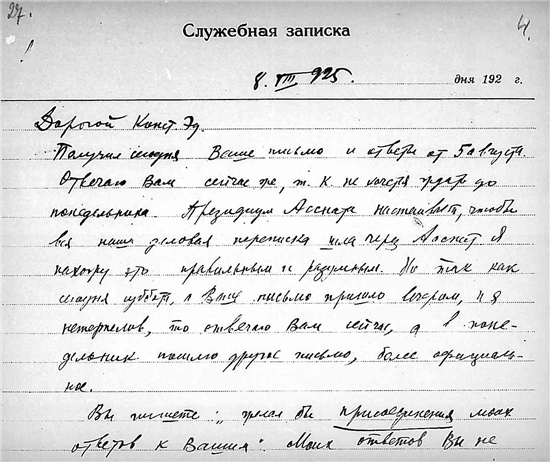 27.
4.
Служебная записка
8. VIII 925. дня 192 г.
Дорогой Конст. Эд.
Получил сегодня Ваше письмо и ответы от 5 августа.
Отвечаю Вам сейчас же, т. к. не хочется ждать до
понедельника. Президиум Ассната настаивает, чтобы
вся наша деловая переписка шла через Асснат. Я
нахожу это правильным и разумным. Но так как
сегодня суббота, а Ваше письмо пришло вечером, и я
нетерпелов, то отвечаю Вам сейчас, а в поне-
дельник пошлю другое письмо, более официаль-
ное.
Вы пишете: "желал бы присоединения моих
ответов к Вашим". Моих ответов Вы не